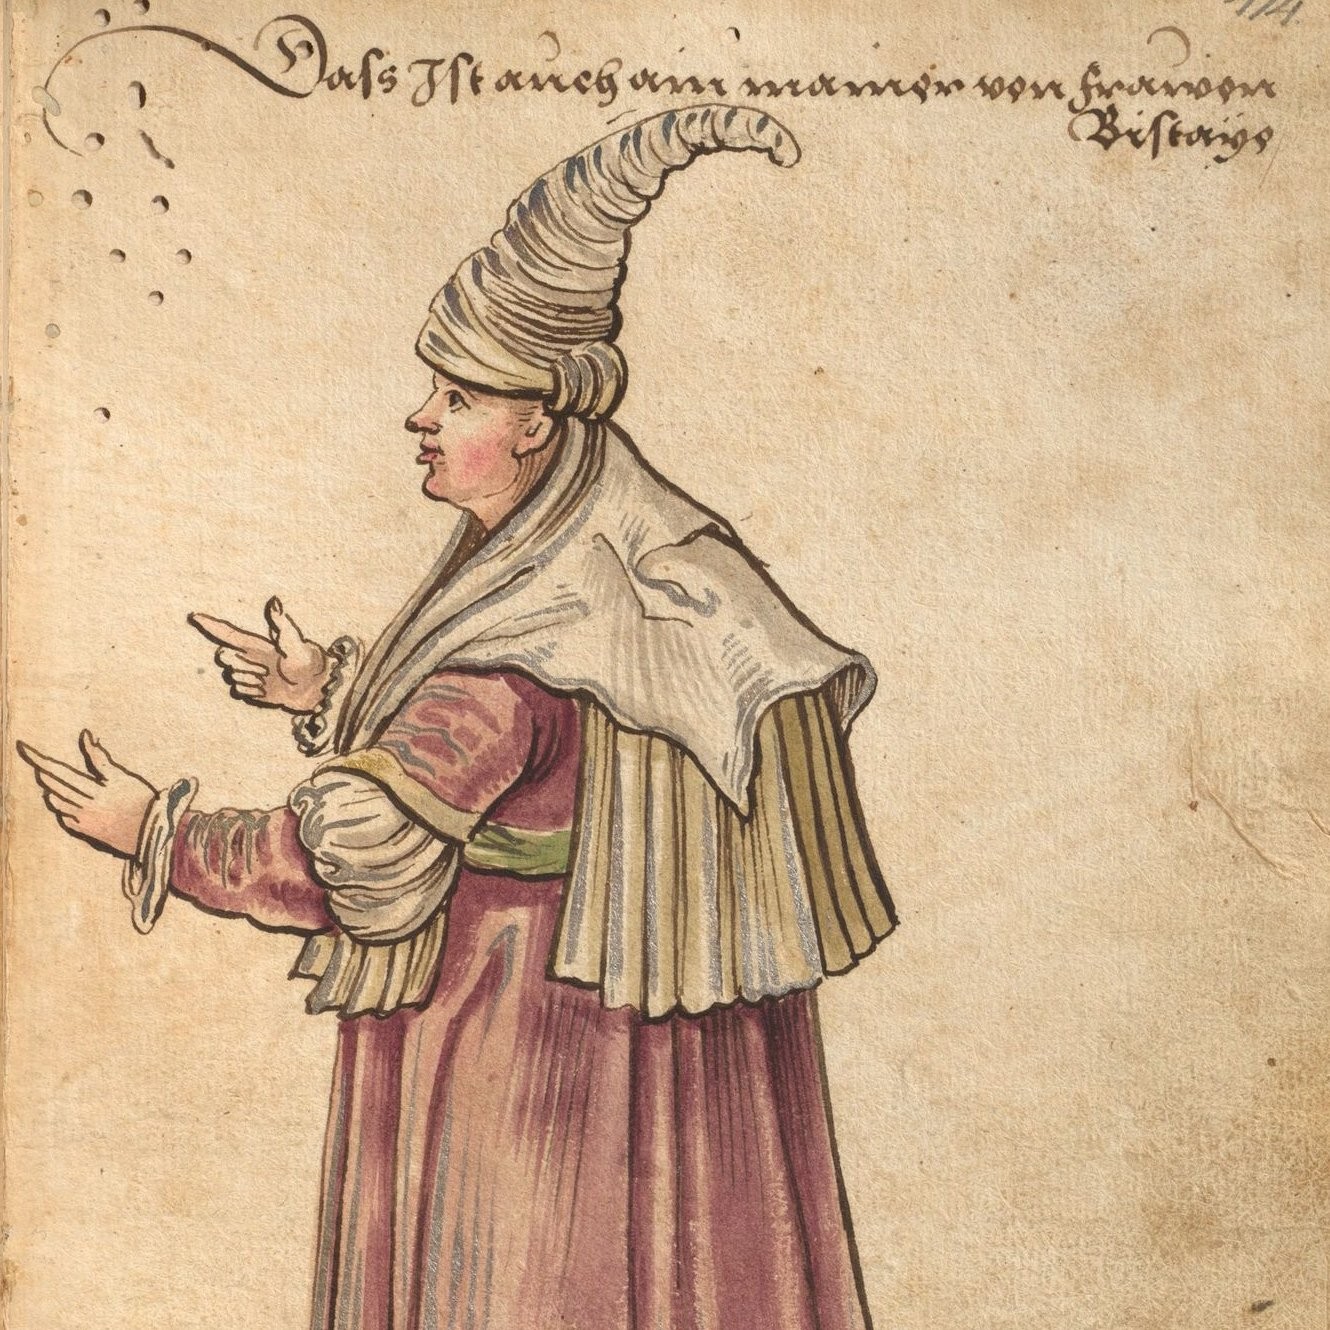 Dass Ist auch ain manier von frawen
Biscaÿe